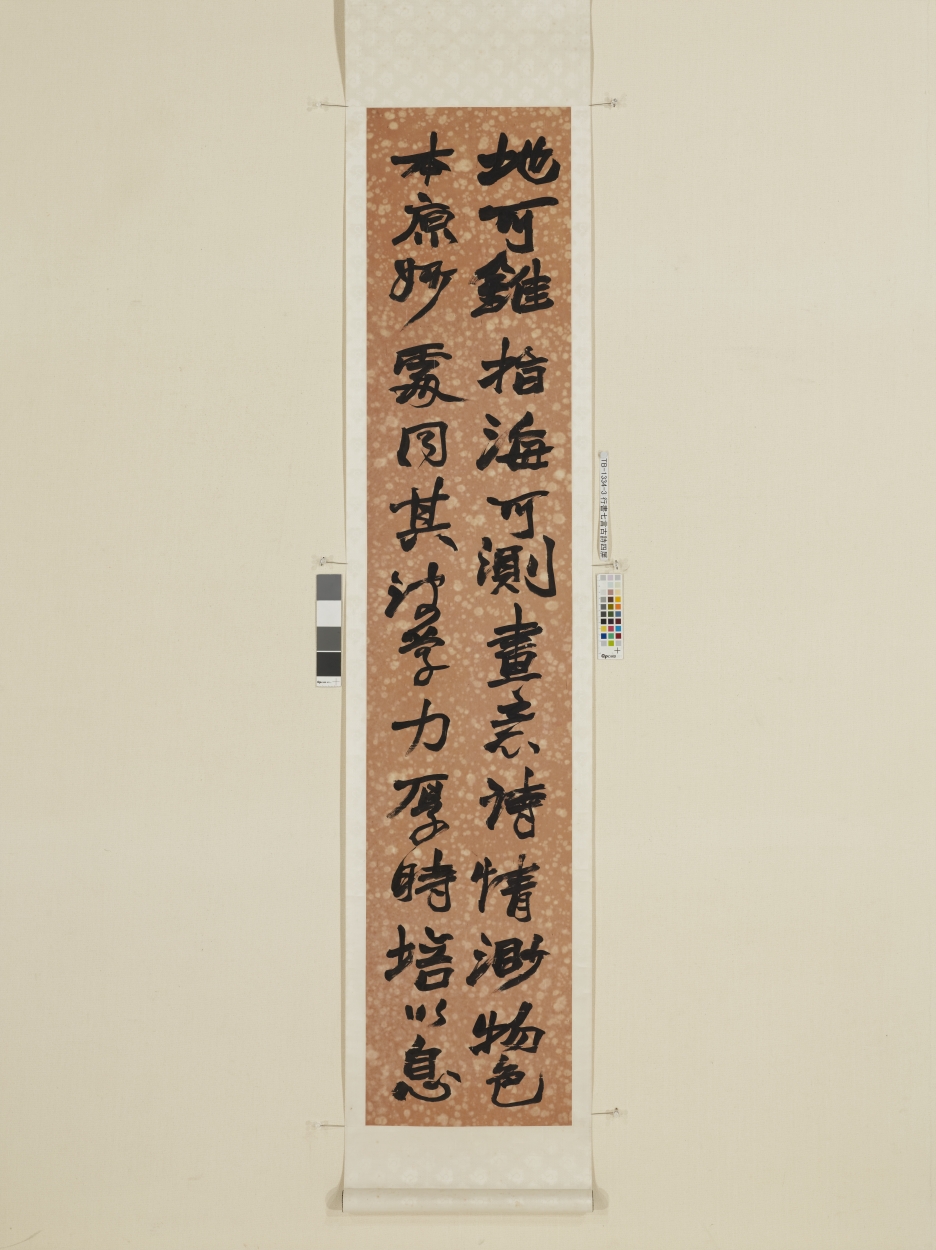 地可錐指海可測畫意詩情渺物色
本原妙處同其學力厚時培以息
TB-1334-3 行書七言古詩四屏